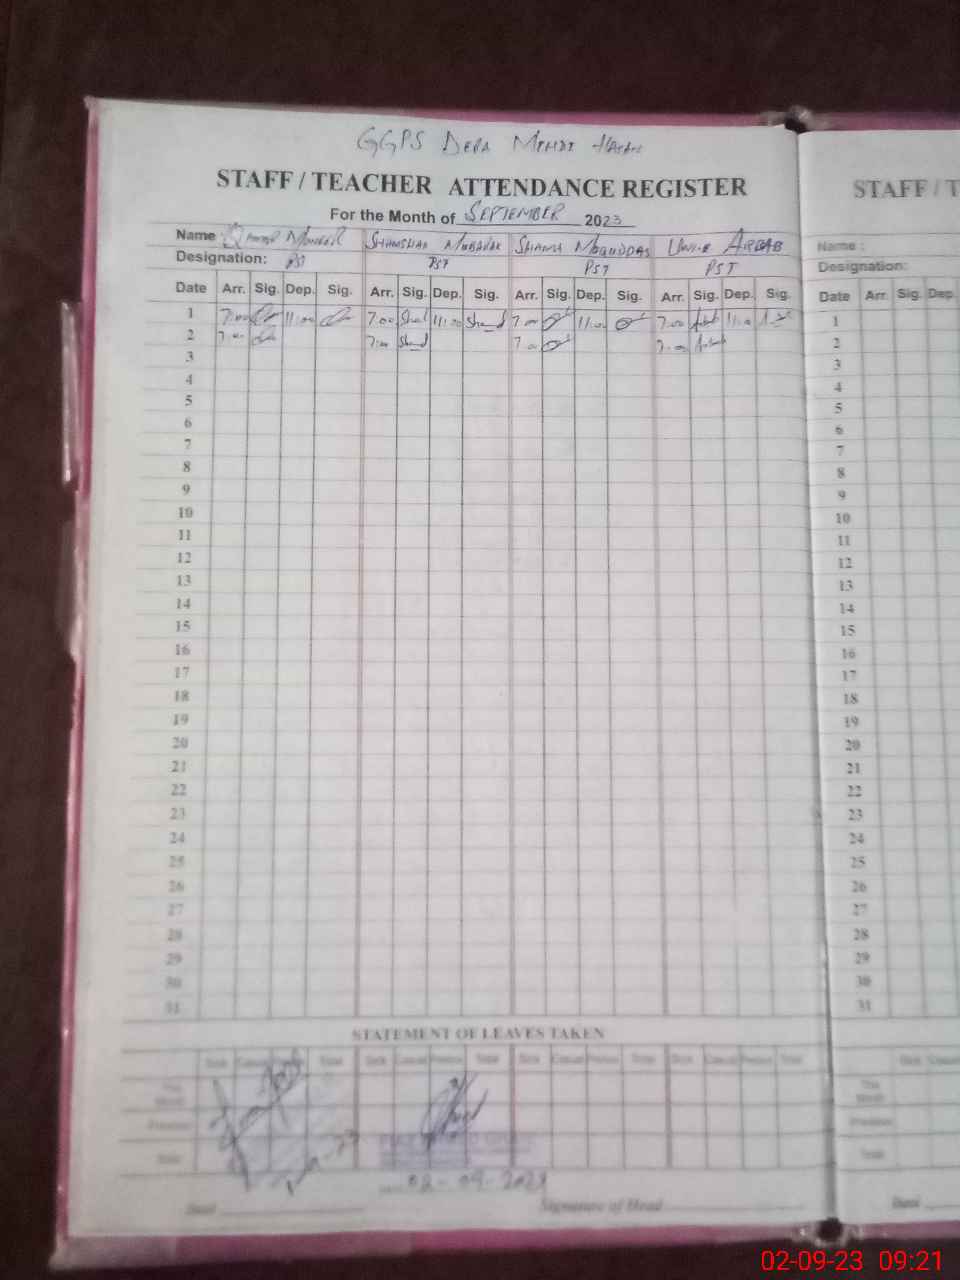 GGPS DERA MEHDI HASAN
STAFF / TEACHER ATTENDANCE REGISTER
STAFF / T
For the Month of SEPTEMBER 2023
Name SHAMSHAD MUBARAK SHAMA MOQUDDAS ARBAB
Name :
Designation: PST PST PST PST
Designation:
Date Arr. Sig. Dep. Sig. Arr. Sig. Dep. Sig. Arr. Sig. Dep. Sig. Arr. Sig. Dep. Sig.
Date Arr. Sig. Dep.
1 7:00 11:00 7:00 11:00 7:00 11:00 7:00 11:00
2 7:00 7:00 7:00 7:00
3
4
5
6
7
8
9
10
11
12
13
14
15
16
17
18
19
20
21
22
23
24
25
26
27
28
29
30
31
1
2
3
4
5
6
7
8
9
10
11
12
13
14
15
16
17
18
19
20
21
22
23
24
25
26
27
28
29
30
31
STATEMENT OF LEAVES TAKEN
Sick Casual Total Sick Casual Total Sick Casual Total Sick Casual Total
This Month
Total
02-09-2023
Signature of Head
02-09-23 09:21